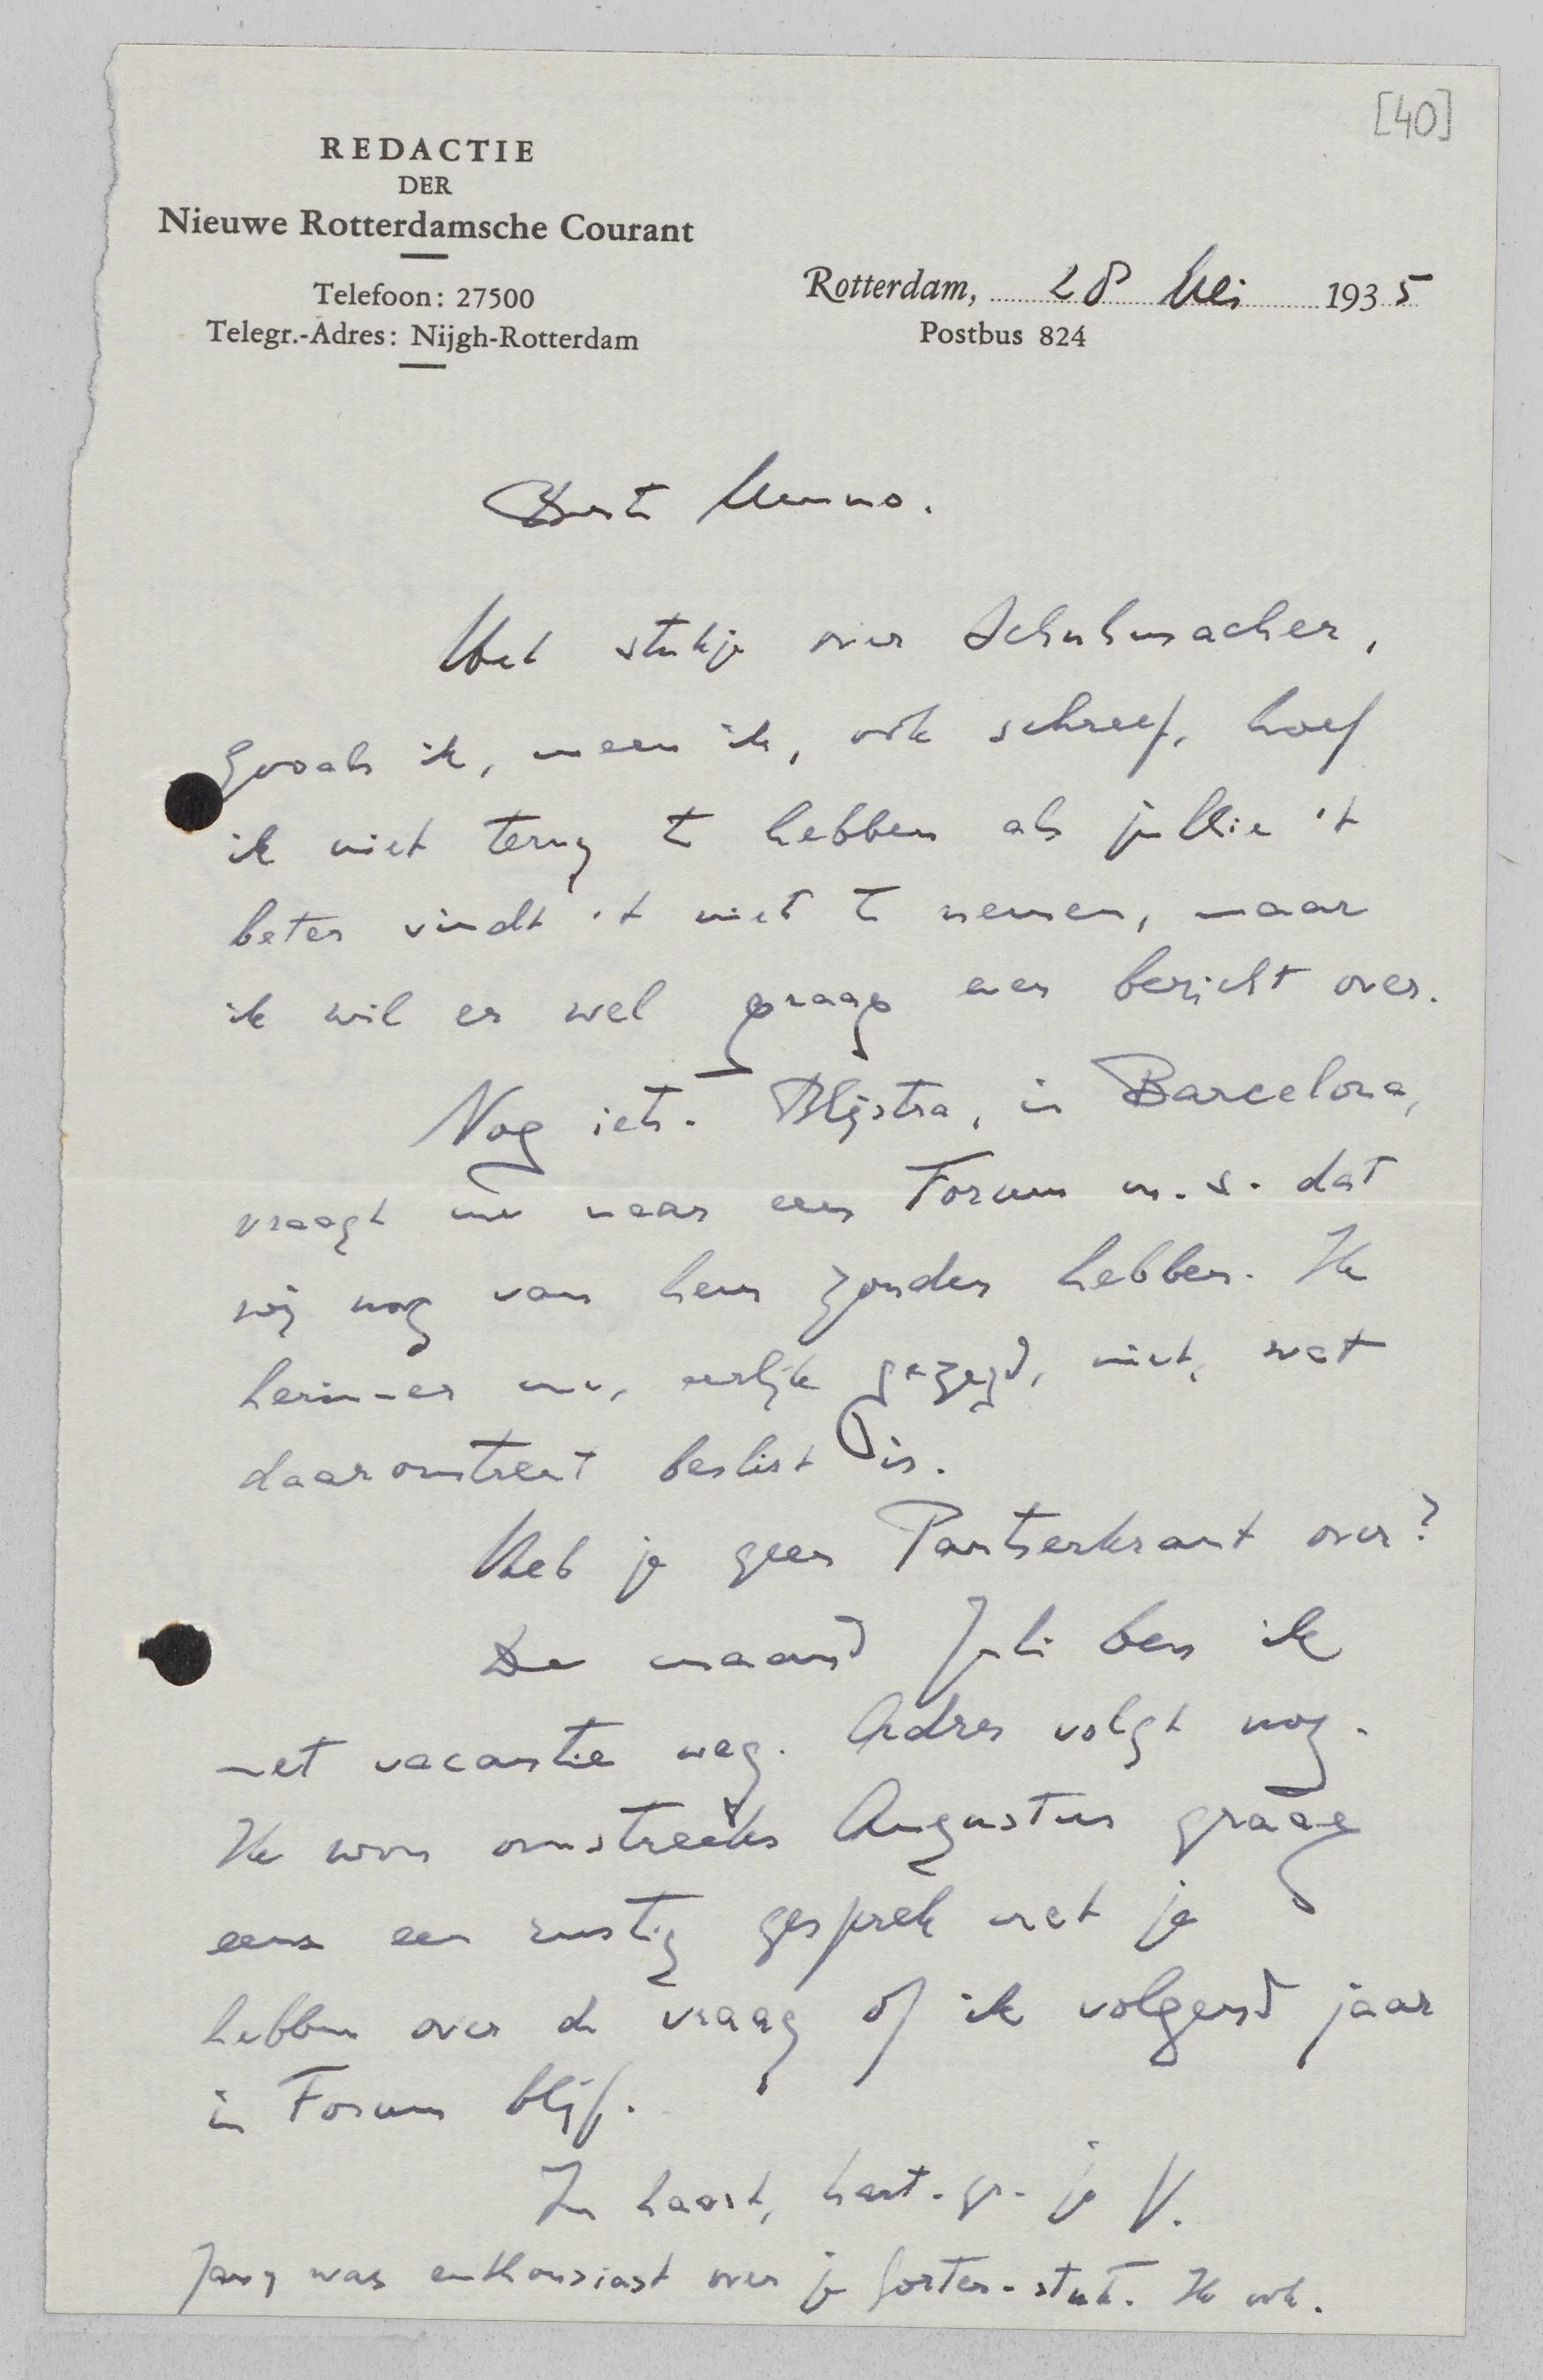 [40]
REDACTIE
DER
Nieuwe Rotterdamsche Courant
Telefoon: 27500
Telegr.-Adres: Nijgh-Rotterdam
Rotterdam, 28 Mei 1935
Postbus 824
Beste Menno.
Het stukje over Schuhmacher,
zooals ik, meen ik, ook schreef, hoef
ik niet terug te hebben als jullie 't
beter vindt 't niet te nemen, maar
ik wil er wel graag even bericht over.
Nog iets. Blijstra, in Barcelona,
vraagt me naar een Forum m.s. dat
wij nog van hem zouden hebben. Ik
herinner me, eerlijk gezegd, niet, wat
daaromtrent beslist is.
Heb je geen Pantserkrant over?
De maand Juli ben ik
met vacantie weg. Adres volgt nog.
Ik wou omstreeks Augustus graag
eens een rustig gesprek met je
hebben over de vraag of ik volgend jaar
in Forum blijf.
In haast, hart. gr. je V.
Jany was enthousiast over je Gorter-stuk. Ik ook.